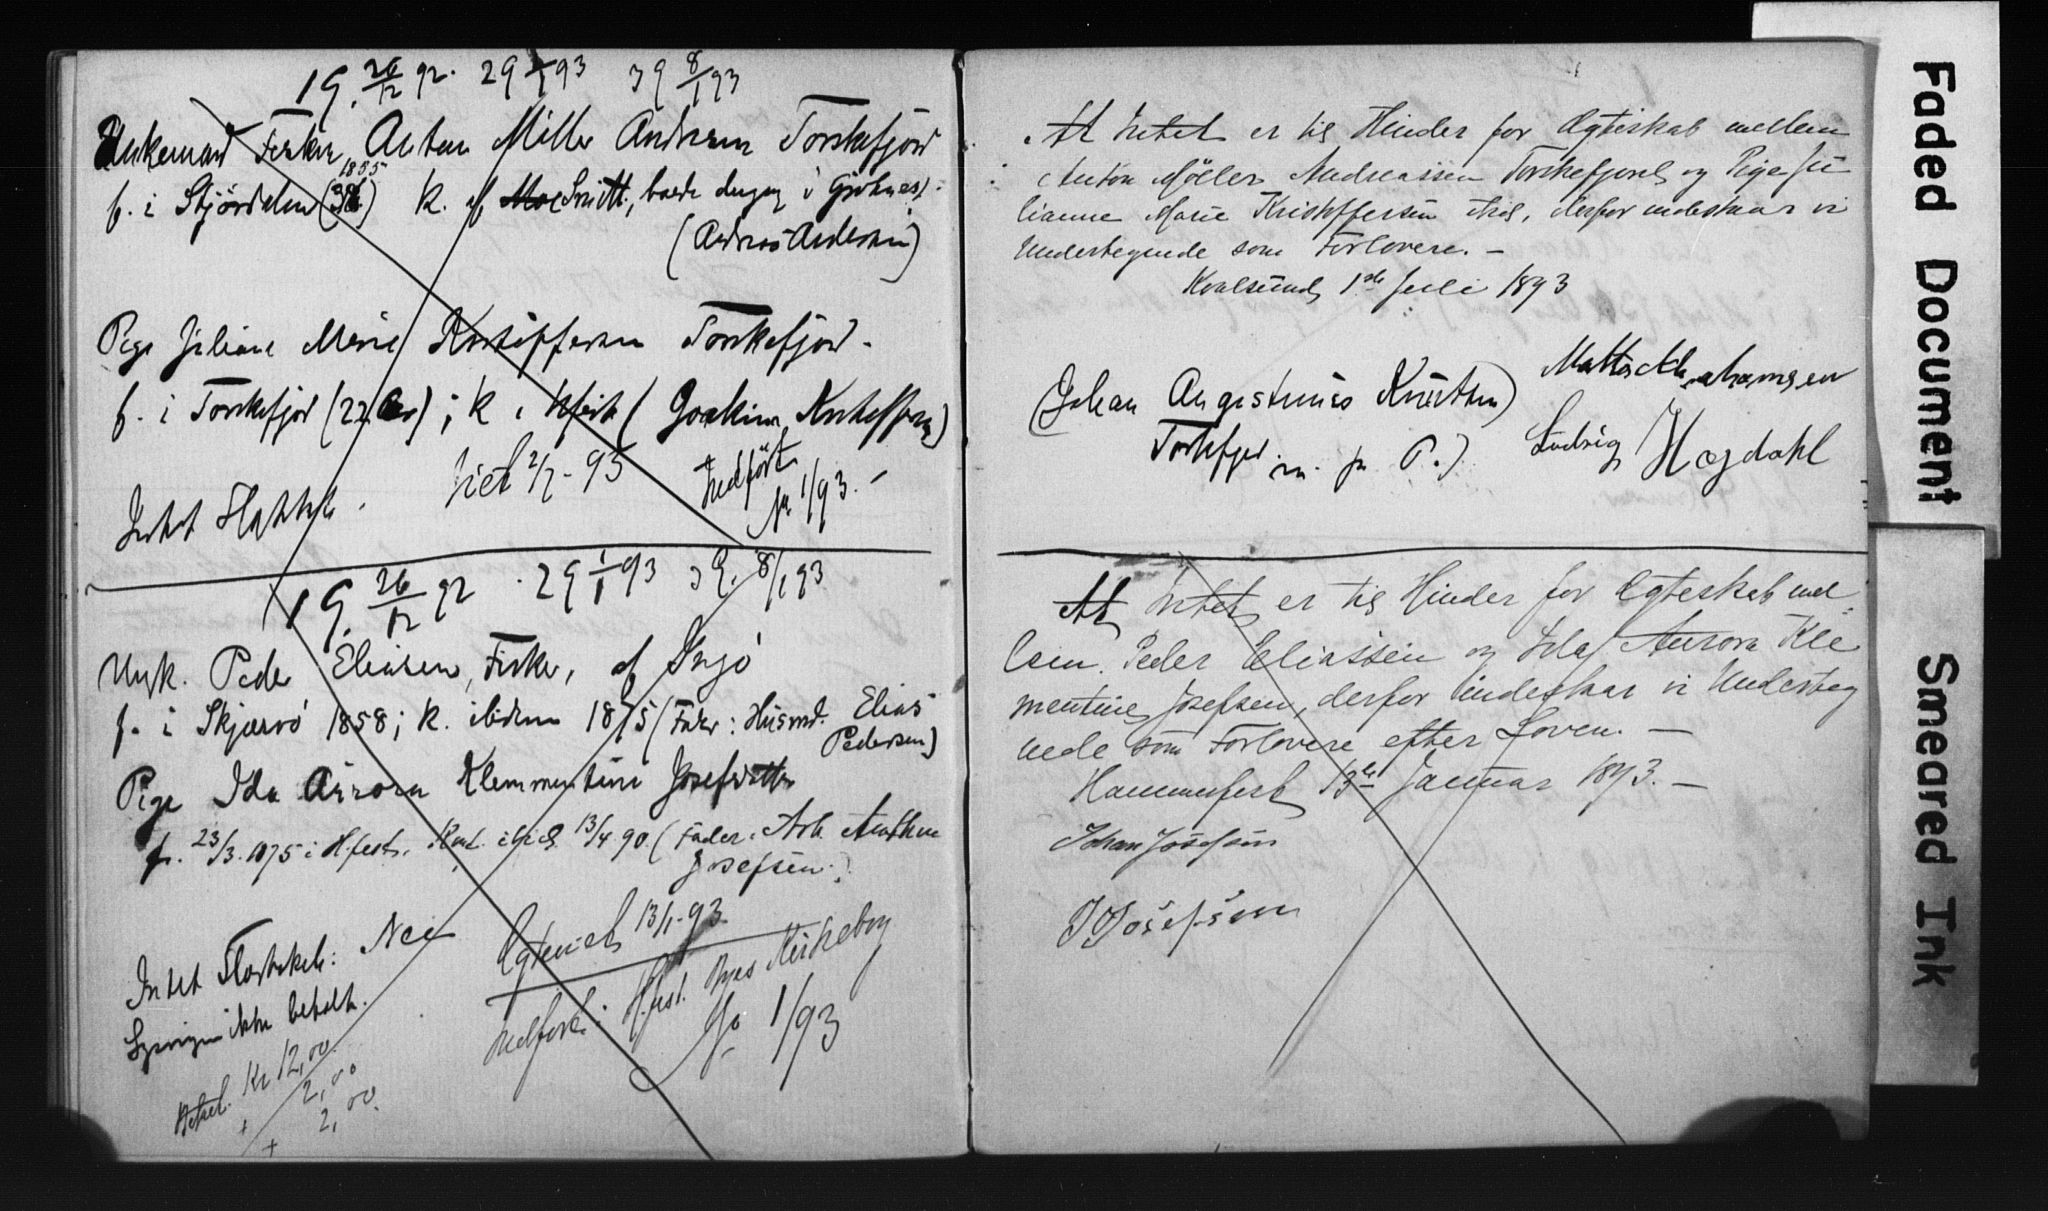 1 G. 26/12 92. 2 G 1/1 93 3 G 8/1 93
Fisker Anton Möller Andersen Torskefjord
1855
f. i Stjördalen (38) K. af Smitt,
(Andreas Andersen)
Pige Juliane Marie Kristoffersen Torskefjord.
f. i Torskefjord (22 Aar); K. i Hfest (Joakim Kristoffersen)
Intet Slægtsk. Viet 2/7-93 Indfört
No 1/93.-
1 G. 26/12 92 . 2 G 1/1 93 3 G. 8/1 93
Ungk. Peder Eliasen, Fisker, af Sejö
f. i Skjærvö 1858; K. ibidem 1875 (Fader: Husmd. Elias
Pedersen)
Pige Ida Aurora Klemmentine Josefsdatter
f. 23/3. 1875 i Hfest. Konf. ibid 13/4 90. (Fader: Arb.
Josefsen.)
Intet Slægtskab: Nei
ikke betalt.
Ægteviet 13/1-93
Indfört i Hfest. Byes Kirkebog
No 1/93
Betalt. Kr 12,00
+ 2,00
+ 2,00.
At Intet er til Hinder for Ægteskab mellem
Anton Möller Andreassen Torskefjord og Pige Ju
lianne Marie Kristoffersen ibid, derfor indestaar vi
Undertegnede som Forlovere. -
Kvalsund 1ste Juli 1893
(Johan Angestinius Knutsen)
Torskefjord m. p. P.)
Ludvig Hogdahl
At Intet er til Hinder for Ægteskab mel
lem Peder Eliassen og Ida Aurora Kle
mentine Josefsen, derfor indestaar vi Underteg
nede som Forlovere efter Loven. -
Hammerfest 13de Januar 1893. -
Johan Josefsen
J Josefsen
Faded Document
Smeared Ink